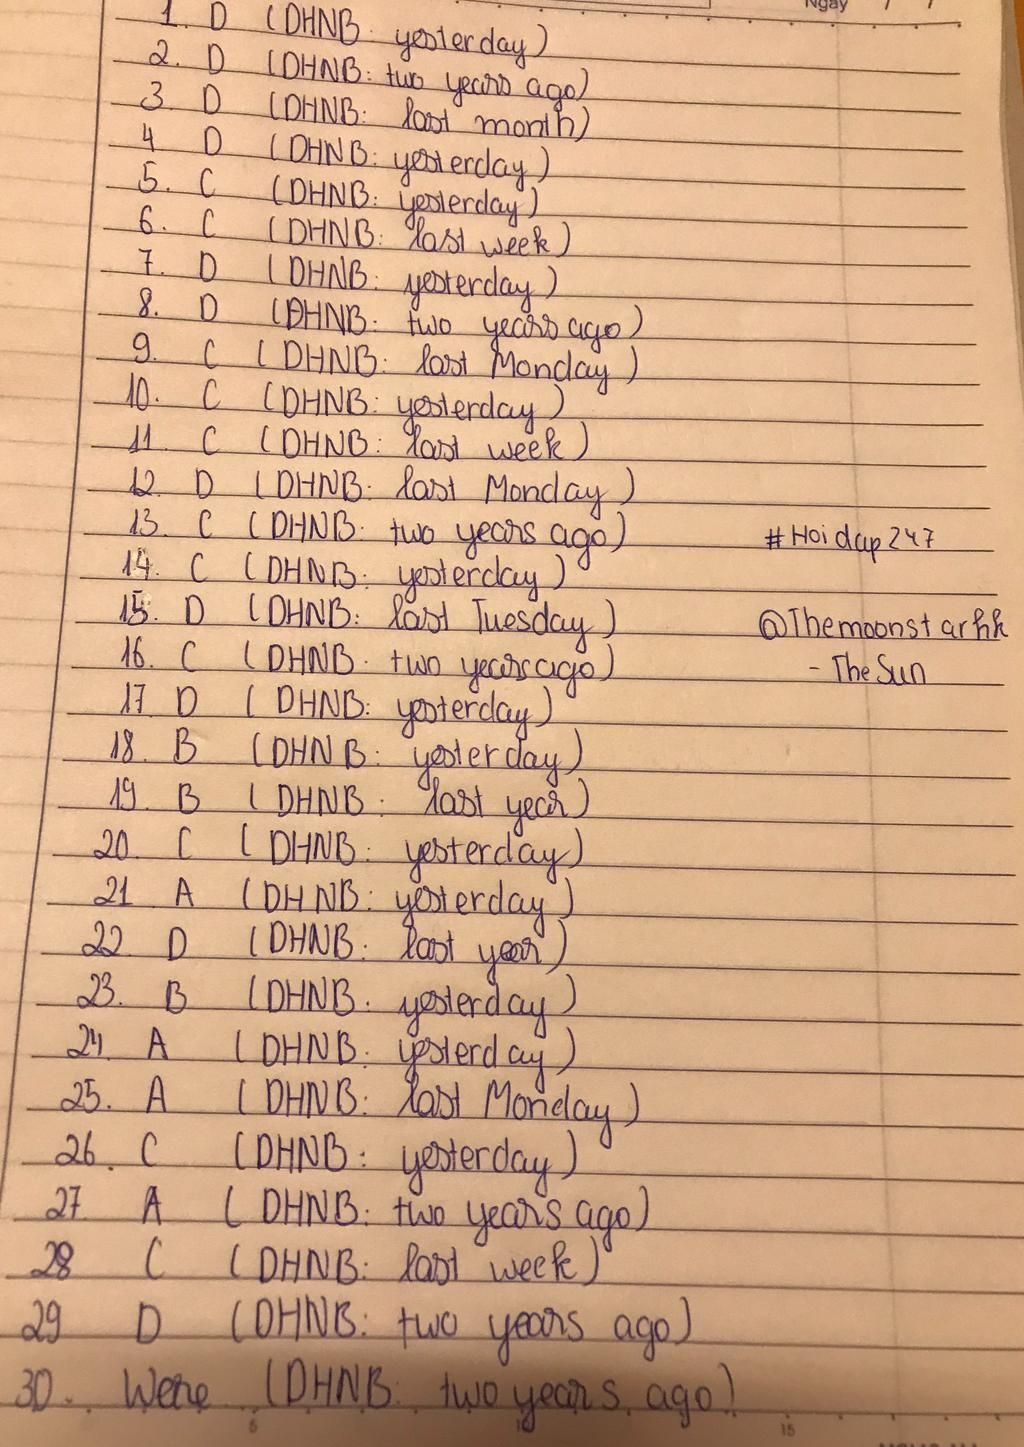 Ngày / /
1. D (DHNB: yesterday)
2. D (DHNB: two years ago)
3. D (DHNB: last month)
4 D (DHNB: yesterday)
5. C (DHNB: yesterday)
6. C (DHNB: last week)
7. D (DHNB: yesterday)
8. D (DHNB: two years ago)
9. C (DHNB: last Monday)
10. C (DHNB: yesterday)
11. C (DHNB: last week)
12. D (DHNB: last Monday)
13. C (DHNB: two years ago) #Hoidap247
14. C (DHNB: yesterday)
15. D (DHNB: last Tuesday) @Themoonstarhk
16. C (DHNB: two years ago) - The Sun
17 D (DHNB: yesterday)
18. B (DHNB: yesterday)
19. B (DHNB: last year)
20. C (DHNB: yesterday)
21 A (DHNB: yesterday)
22 D (DHNB: last year)
23. B (DHNB: yesterday)
24 A (DHNB: yesterday)
25. A (DHNB: last Monday)
26. C (DHNB: yesterday)
27 A (DHNB: two years ago)
28 C (DHNB: last week)
29 D (DHNB: two years ago)
30. Were (DHNB: two years ago)
5 15